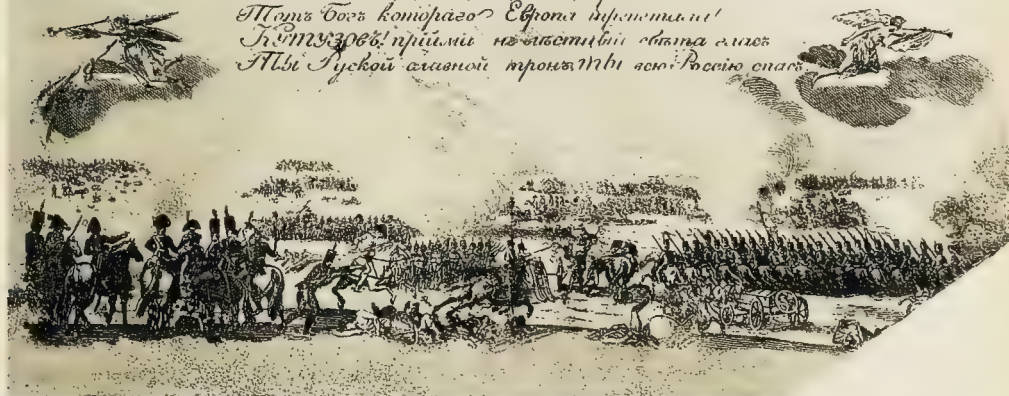 Тотъ Богъ котораго Европа трепетала!
КУТУЗОВЪ! прійми не лѣстный свѣта гласъ
Ты Руской славной тронъ, ТЫ всю Россію спасъ